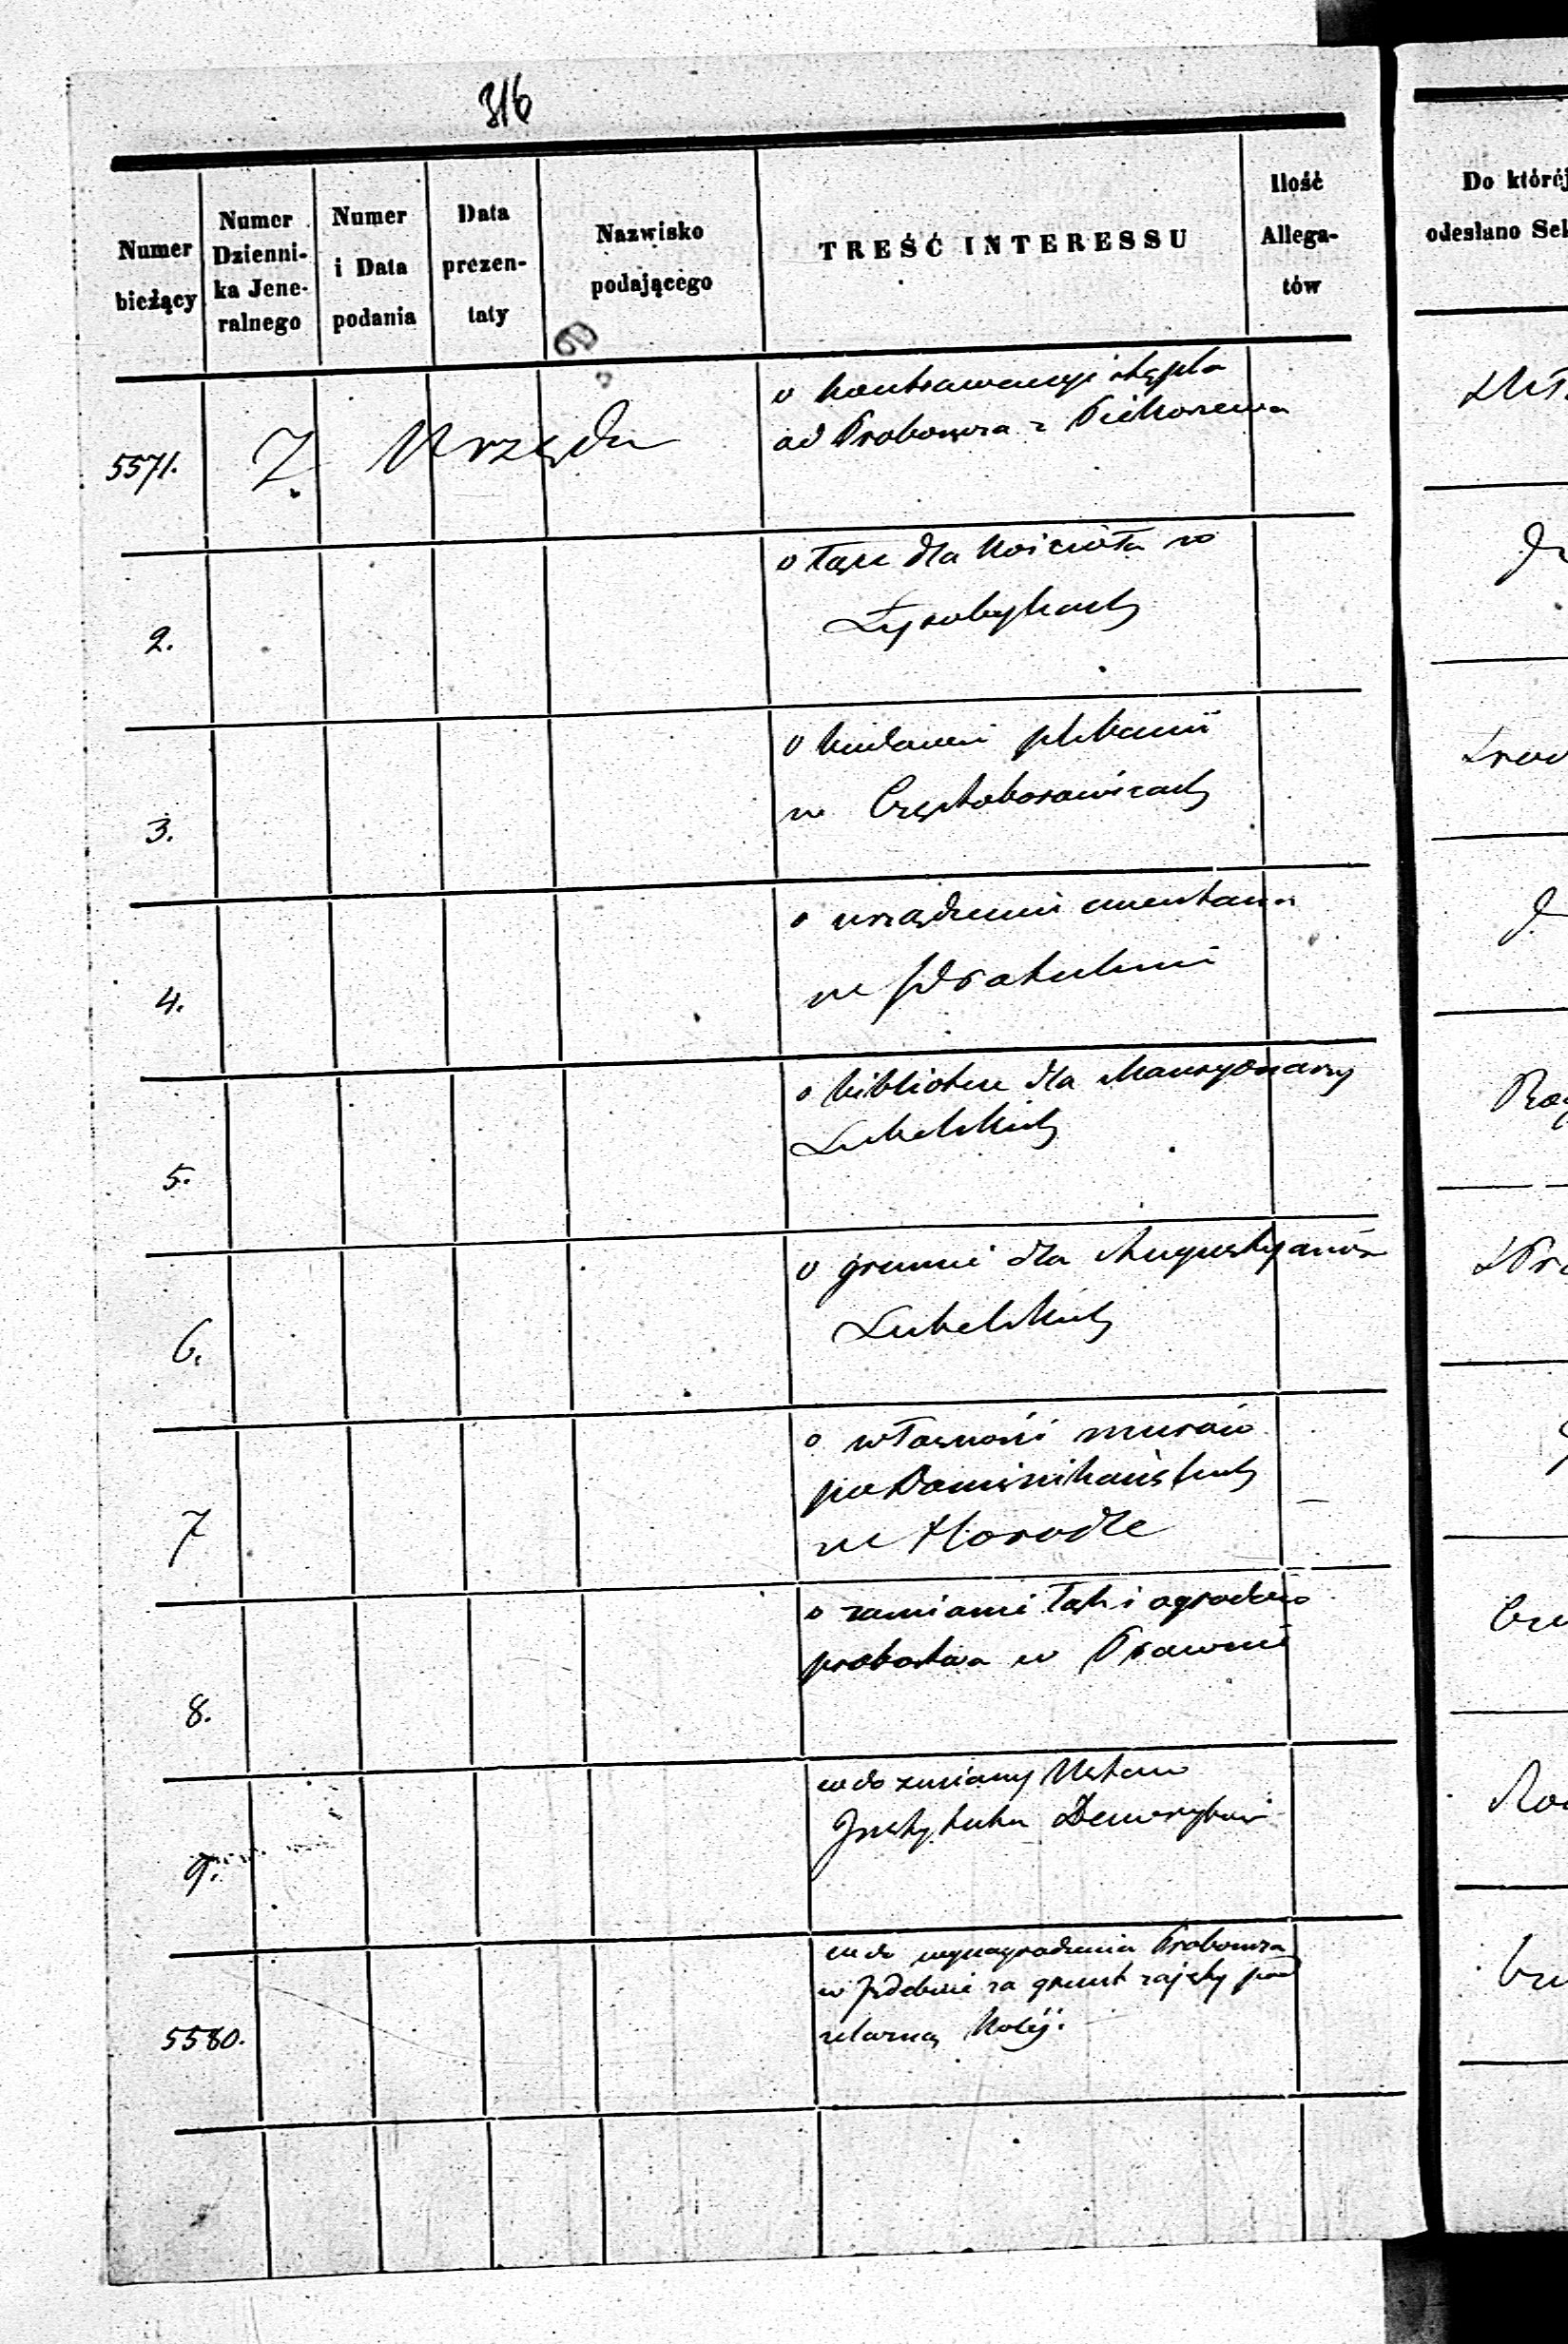 316
Numer bieżący
Numer Dzienni- ka Jene- ralnego
Numer i Data podania
Data prezen- taty
Nazwisko podającego
TREŚĆ INTERESSU
Ilość Allega- tów
Do któréj
odesłano Sek
5571.
Z Urzędu
o kontrawencyi stępla
od Proboszcza z
2.
o łące dla Kościoła w
Łysobykach
3.
o budowie plebanii
w Częstoborowicach
4.
o urządzenie cmentarza
w Pratulinie
5.
o bibliotece dla Mansyonarzy
Lubelskich
6.
o gruncie dla Augustyanów
Lubelskich
7
o własność murów
po Dominikańskich
w Horodle
8.
o zamianie łąk i ogrodów
probostwa w Prawnie
9.
co do zmiany Ustaw
Instytutu Demerytów
5580.
co do wynagrodzenia Proboszcza
w za grunt zajęty pod
żelazną Koléj.